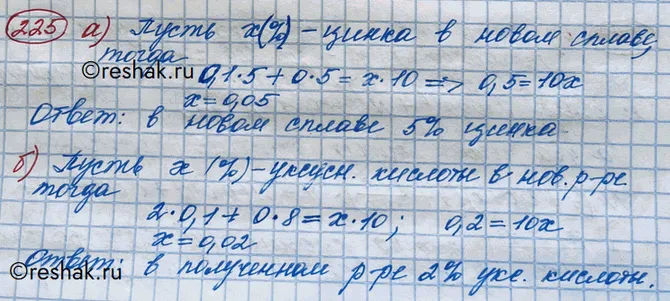 225 а) Пусть x(%) - цинка в новом сплаве,
тогда
©reshak.ru
0,1·5 + 0·5 = x·10 => 0,5 = 10x
x = 0,05
Ответ: в новом сплаве 5% цинка
б) Пусть x (%) - уксусн. кислоты в нов. р-ре
тогда
2·0,1 + 0·8 = x·10 ; 0,2 = 10x
x = 0,02
Ответ: в полученном р-ре 2% укс. кислоты.
©reshak.ru